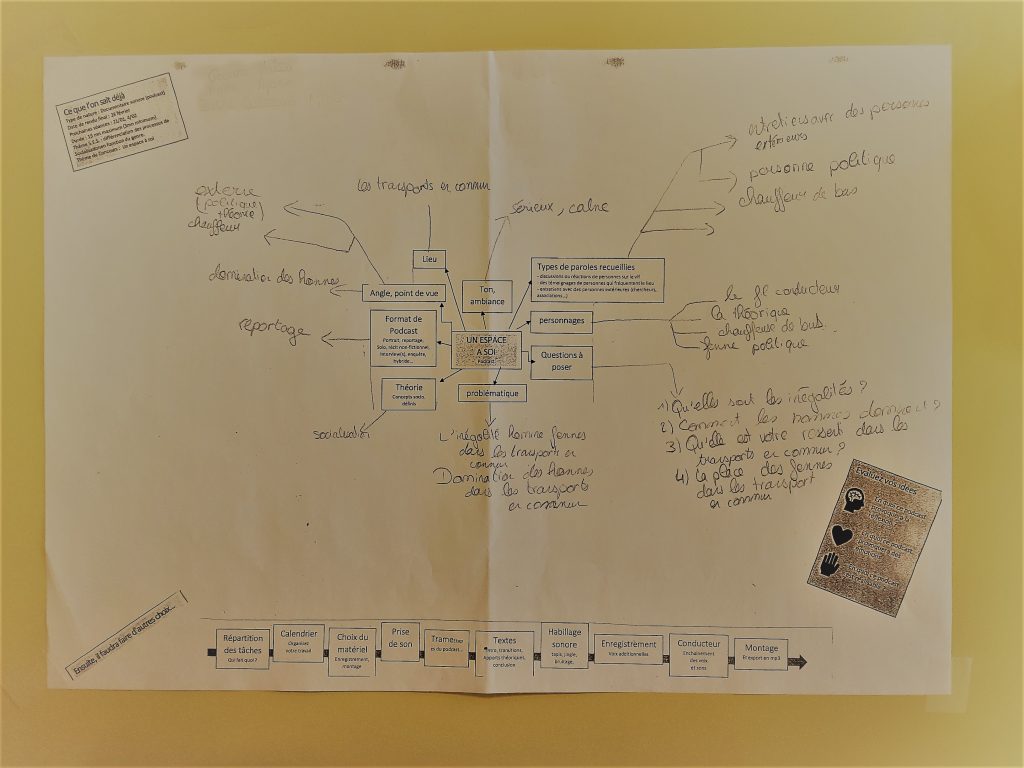 Ce que l'on sait déjà
Type de nature : Documentaire sonore (podcast)
Date de rendu final :
Prochaines séances :
Durée : 10 mn maximum (3mn minimum)
Thème S.E.S. : différenciation des processus de
Socialisation en fonction du genre.
Thème de Concours : Un espace à soi
entretiens avec des personnes
extérieurs
personne politique
chauffeur de bus
les transports en commun
externe
(politique
+ théorie)
chauffeur
sérieux, calme
Lieu
Types de paroles recueillies
- discussions ou réactions de personnes sur le vif
- des témoignages de personnes qui fréquentent le lieu
- entretiens avec des personnes extérieures (chercheurs,
associations...)
domination des hommes
Angle, point de vue
Ton,
ambiance
le fil conducteur
la théorique
chauffeur de bus
femme politique
personnages
reportage
Format de
Podcast
Portrait, reportage,
Solo, récit non-fictionnel,
Interview(s), enquête,
hybride...
UN ESPACE
A SOI
Podcast
Questions à
poser
Théorie
Concepts socio.
définis
problématique
socialisation
L'inégalité homme femmes
dans les transports en
commun
Domination des hommes
dans les transports
en commun
1) Qu'elles sont les inégalités ?
2) Comment les hommes dominent ?
3) Qu'elle est votre ressenti dans les
transports en commun ?
4) la place des femmes
dans les transport
en commun
Evaluez vos idées
Ensuite, il faudra faire d'autres choix...
Répartition
des tâches
Qui fait quoi ?
Calendrier
Organisez
votre travail
Choix du
matériel
Enregistrement,
montage
Prise
de son
Trame
du podcast...
Textes
Intro, transitions,
Apports théoriques,
conclusion
Habillage
sonore
tapis, jingle,
bruitage,
Enregistrement
Voix additionnelles
Conducteur
Enchaînement
des voix
et sons
Montage
Et export en mp3